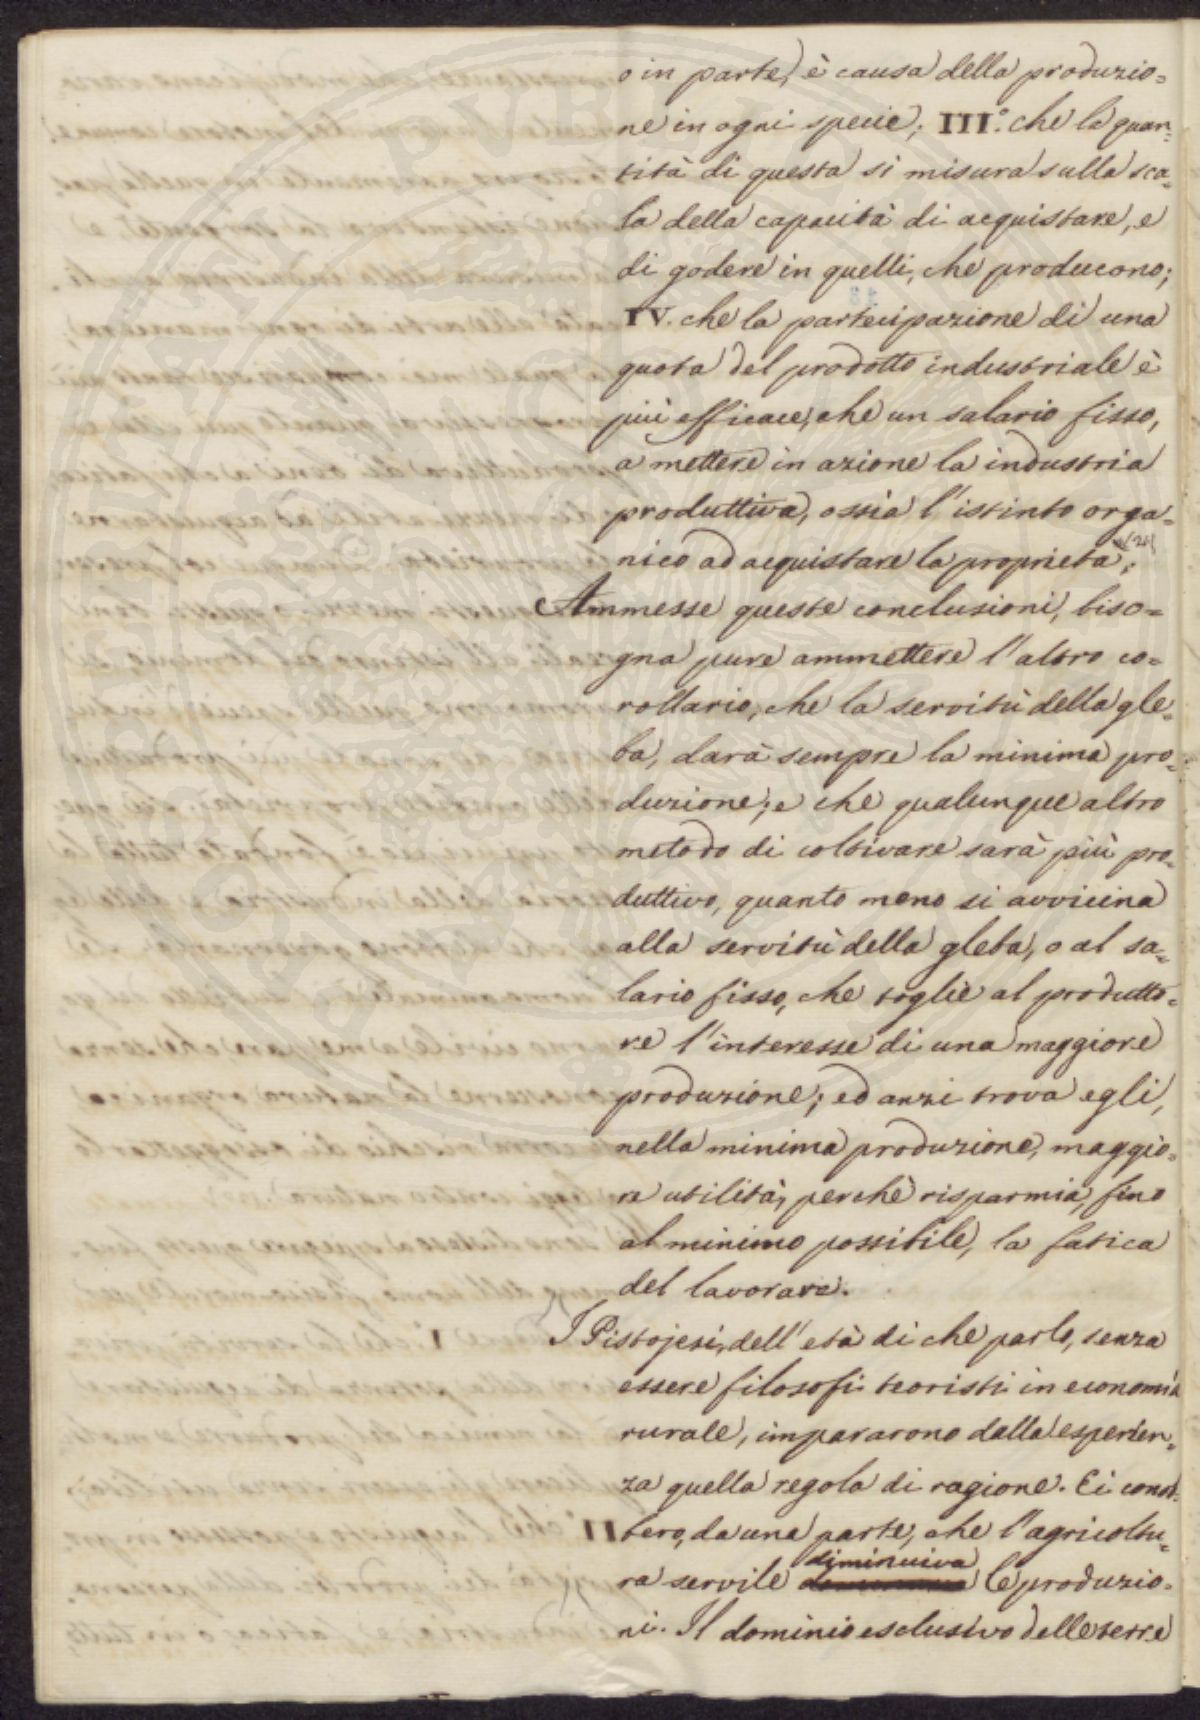 o in parte, è causa della produzio=
ne in ogni specie; III.° che la quan=
tità di questa si misura sulla sca=
la della capacità di acquistare, e
di godere in quelli, che producono;
IV. che la partecipazione di una
quota del prodotto industriale è
più efficace, che un salario fisso,
a mettere in azione la industria
produttiva, ossia l'istinto orga=
nico ad acquistare la proprietà;
Ammesse queste conclusioni, biso=
gna pure ammettere l'altro co=
rollario, che la servitù della gle=
ba, darà sempre la minima pro=
duzione; e che qualunque altro
metodo di coltivare sarà più pro=
duttivo, quanto meno si avvicina
alla servitù della gleba, o al sa=
lario fisso, che toglie al produtto=
re l'interesse di una maggiore
produzione; ed anzi trova egli,
nella minima produzione, maggio=
re utilità, perchè risparmia, fino
al minimo possibile, la fatica
del lavorare.
I Pistojesi, dell'età di che parlo, senza
essere filosofi teoristi in economia
rurale, impararono dalla esperien=
za quella regola di ragione. Ei conob=
bero, da una parte, che l'agricoltu=
ra servile diminuiva le produzio=
ni. Il dominio esclusivo delle terre